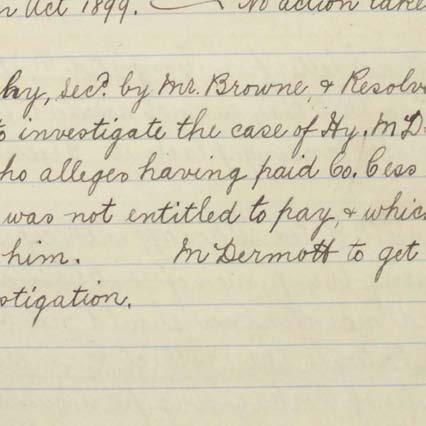 n Act 1899. — No action take
hy, Secd. by Mr. Browne, & Resolv
to investigate the case of Hy. McD
ho alleges having paid Co. Cess
was not entitled to pay, & whic
him. McDermott to get
stigation.